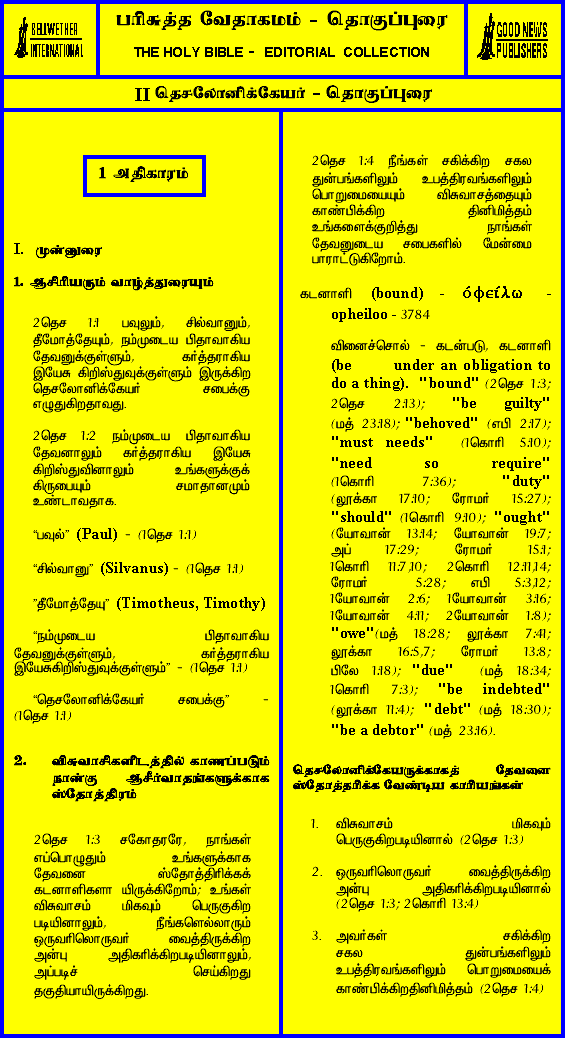 BELLWETHER
INTERNATIONAL
பரிசுத்த வேதாகமம் - தொகுப்புரை
THE HOLY BIBLE - EDITORIAL COLLECTION
GOOD NEWS
PUBLISHERS
II தெசலோனிக்கேயர் - தொகுப்புரை
1 அதிகாரம்
I. முன்னுரை
1. ஆசிரியரும் வாழ்த்துரையும்
2தெச 1:1 பவுலும், சில்வானும்,
தீமோத்தேயும், நம்முடைய பிதாவாகிய
தேவனுக்குள்ளும், கர்த்தராகிய
இயேசு கிறிஸ்துவுக்குள்ளும் இருக்கிற
தெசலோனிக்கேயர் சபைக்கு
எழுதுகிறதாவது.
2தெச 1:2 நம்முடைய பிதாவாகிய
தேவனாலும் கர்த்தராகிய இயேசு
கிறிஸ்துவினாலும் உங்களுக்குக்
கிருபையும் சமாதானமும்
உண்டாவதாக.
“பவுல்” (Paul) - (1தெச 1:1)
“சில்வானு” (Silvanus) - (1தெச 1:1)
”தீமோத்தேயு” (Timotheus, Timothy)
“நம்முடைய பிதாவாகிய
தேவனுக்குள்ளும், கர்த்தராகிய
இயேசுகிறிஸ்துவுக்குள்ளும்” - (1தெச 1:1)
“தெசலோனிக்கேயர் சபைக்கு” -
(1தெச 1:1)
2. விசுவாசிகளிடத்தில் காணப்படும்
நான்கு ஆசீர்வாதங்களுக்காக
ஸ்தோத்திரம்
2தெச 1:3 சகோதரரே, நாங்கள்
எப்பொழுதும் உங்களுக்காக
தேவனை ஸ்தோத்திரிக்கக்
கடனாளிகளா யிருக்கிறோம்; உங்கள்
விசுவாசம் மிகவும் பெருகுகிற
படியினாலும், நீங்களெல்லாரும்
ஒருவரிலொருவர் வைத்திருக்கிற
அன்பு அதிகரிக்கிறபடியினாலும்,
அப்படிச் செய்கிறது
தகுதியாயிருக்கிறது.
2தெச 1:4 நீங்கள் சகிக்கிற சகல
துன்பங்களிலும் உபத்திரவங்களிலும்
பொறுமையையும் விசுவாசத்தையும்
காண்பிக்கிற தினிமித்தம்
உங்களைக்குறித்து நாங்கள்
தேவனுடைய சபைகளில் மேன்மை
பாராட்டுகிறோம்.
கடனாளி (bound) - ὀφείλω -
opheiloo - 3784
வினைச்சொல் - கடன்படு, கடனாளி
(be under an obligation to
do a thing). "bound" (2தெச 1:3;
2தெச 2:13); "be guilty"
(மத் 23:18); "behoved" (எபி 2:17);
"must needs" (1கொரி 5:10);
"need so require"
(1கொரி 7:36); "duty"
(லூக்கா 17:10; ரோமர் 15:27);
"should" (1கொரி 9:10); "ought"
(யோவான் 13:14; யோவான் 19:7;
அப் 17:29; ரோமர் 15:1;
1கொரி 11:7,10; 2கொரி 12:11,14;
ரோமர் 5:28; எபி 5:3,12;
1யோவான் 2:6; 1யோவான் 3:16;
1யோவான் 4:11; 2யோவான் 1:8);
"owe"(மத் 18:28; லூக்கா 7:41;
லூக்கா 16:5,7; ரோமர் 13:8;
பிலே 1:18); "due" (மத் 18:34;
1கொரி 7:3); "be indebted"
(லூக்கா 11:4); "debt" (மத் 18:30);
"be a debtor" (மத் 23:16).
தெசலோனிக்கேயருக்காகத் தேவனை
ஸ்தோத்தரிக்க வேண்டிய காரியங்கள்
1. விசுவாசம் மிகவும்
பெருகுகிறபடியினால் (2தெச 1:3)
2. ஒருவரிலொருவர் வைத்திருக்கிற
அன்பு அதிகரிக்கிறபடியினால்
(2தெச 1:3; 2கொரி 13:4)
3. அவர்கள் சகிக்கிற
சகல துன்பங்களிலும்
உபத்திரவங்களிலும் பொறுமையைக்
காண்பிக்கிறதினிமித்தம் (2தெச 1:4)